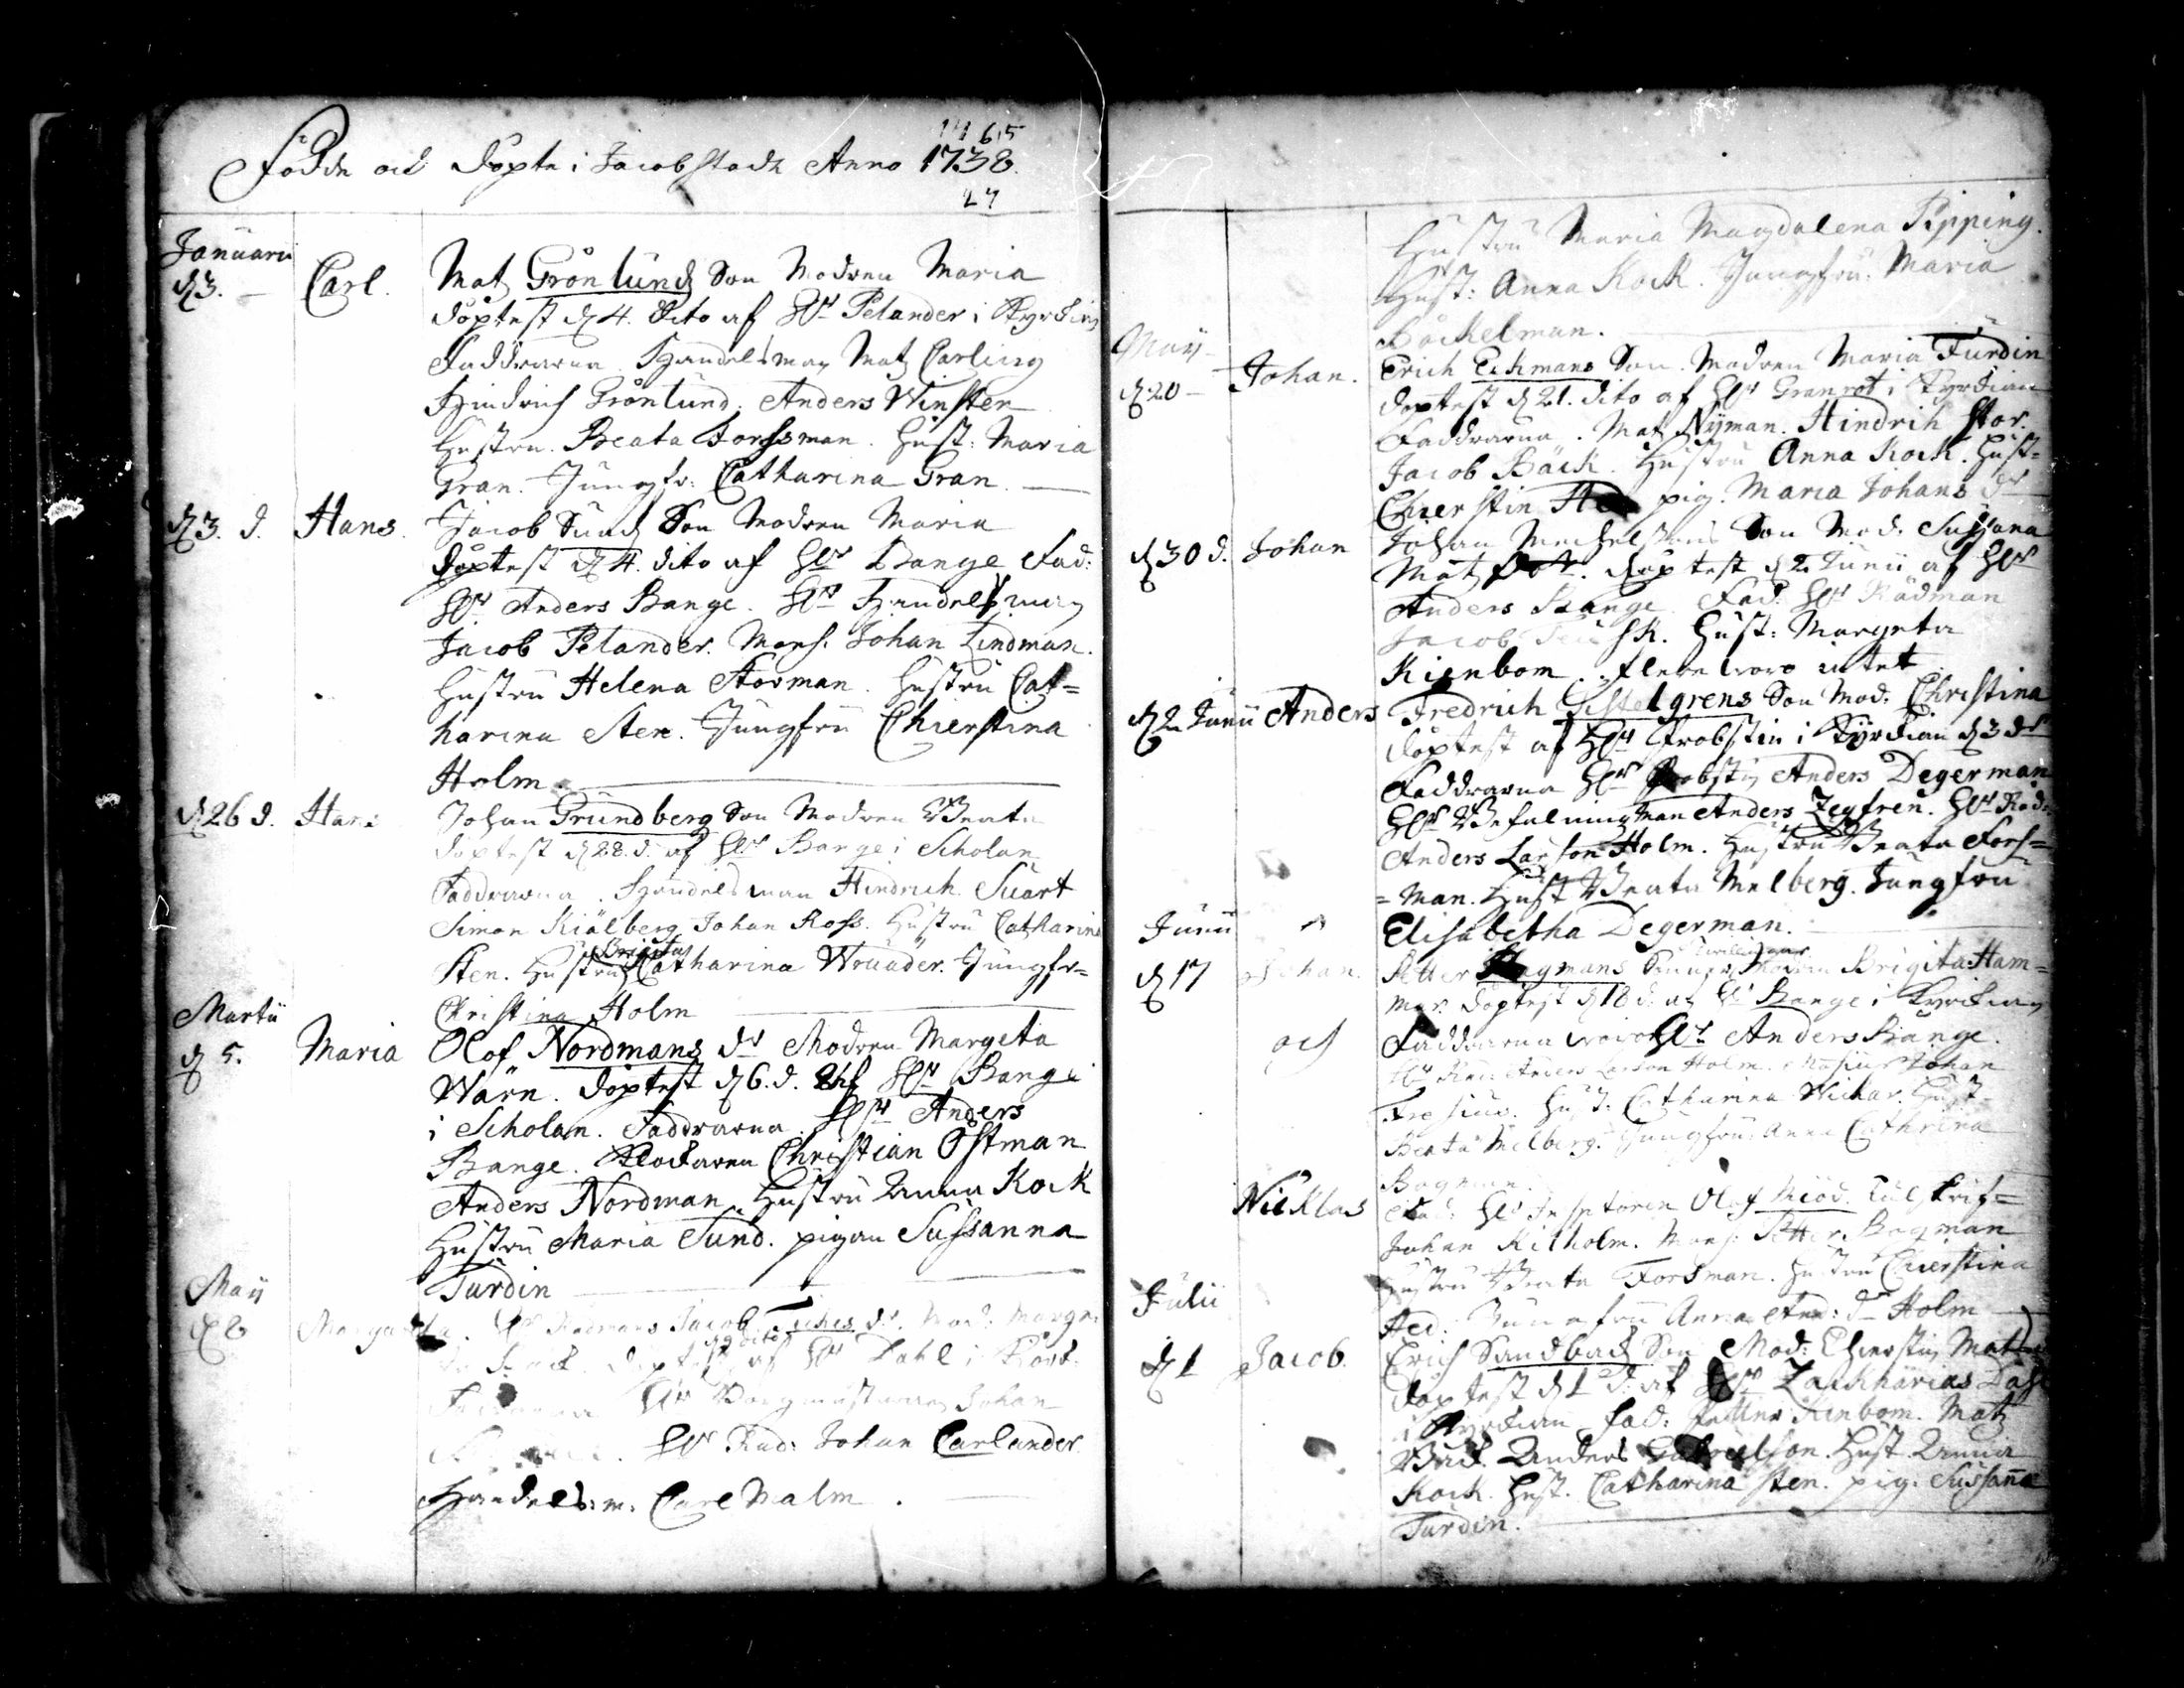 1465
Födde och Döpte i Jacobstadh Anno 1738.
27
Januarii
d 3. Carl. Matz Grönlunds Son Modren Maria
döptest d 4. dito af Hr Pelander i Kyrckian
Faddrarna Handelsman Matz Carling
Hindrich Grönlund. Anders Winsten
Hustru. Beata Forssman. Hust: Maria
Gran. Jungfr: Catharina Gran.
d 3. d. Hans. Jacob Sunds Son Modren Maria
Döptest d 4. dito af Hr Bange Fad:
Hr Anders Bange. Hr Handelsman
Jacob Pelander. Mons. Johan Lindman.
Hustru Helena Storman. Hustru Cat=
harina Sten. Jungfru Chierstina
Holm.
d 26 d. Hans Johan Grundberg Son Modren Beata
döptest d 28. d. af Hr Bange i Scholan
Faddrarna. Handelsman Hindrich Suart
Simon Kiälberg Johan Ross. Hustru Catharina
Sten. Hustru Brigita Catharina Wruader. Jungfr=
Christina Holm
Martii
d 5. Maria Olof Nordmans dr Modren Margeta
Wärn. döptest d 6. d. af Hr Bange
i Scholan. Faddrarna. Hr Anders
Bange. Klockaren Christian Östman
Anders Nordman. Hustru Anna Kock
Hustru Maria Sund. pigan Sussanna
Turdin
Maij
d 8 Margareta. Hr Rådmans Jacob dr. Mod: Marge
döptest d 9 dito af Hr Dahl i Kyrck.
Hr Borgmestaren Johan
Hr Råd: Johan Carlander.
Handels: m: Carl Malm.
Hustru Maria Magdalena Pipping.
Hust: Anna Kock. Jungfru: Maria
Böckelman.
Maij
d 20 Johan. Erich Eckmans Son. Modren Maria Turdin
döptest d 21. dito af Hr Granrot i Kyrckian
Faddrarna. Matz Nyman. Hindrih Stor.
Jacob Bäck. Hustru Anna Kock. Hust=
Chierstin pig. Maria Johans dr
d 30 d. Johan Johan Mechelssons Son Mod: Susana
Matz Dot:. döptest d 2 Junii af Hr
Anders Bange. Fad: Hr Rådman
Jacob. Hust: Margeta
Kienbom. flere woro intet
d 2 Junii Anders Fredrich Gisselgrens Son Mod: Christina
döptest af Hr Probsten i Kyrckian d 3 dr
Faddrarna Hr Probsten Anders Degerman
Hr Befalningsman Anders Zegfren. Hr Råd:
Anders Larsson Holm. Hustru Beata Fors=
=man. Hust Beata Melberg. Jungfru
Elisabetha Degerman.
Junii
d 17 Johan. Petter Bagmans Söner Twillingar Modren Brigita Ham=
mar. döptest d 18 d: af Hr Bange i Kyrckian
och Faddrarna woro Hr Anders Bange.
Hr Råd: Anders Larson Holm. Johan
Hust: Catharina Wichar. Hust=
Beata Melberg. Jungfru Anna Cathrina
Bagman.
Nicklas Fad: Hr Inspectoren Olof Kiöd. Tulskrif=
Johan Kilholm. Mons: Petter Bagman
Hustru Beata Forsman. Hustru Chierstina
Hed. Jungfru Anna And: dr Holm
Julii
d 1 Jacob. Erich Sandbacks Son Mod: Chierstin Matz dr
döptest d 2 d: af Hr Zackharias Dahl
i Kyrckian Fad: Petter Kinbom. Matz
Back. Anders Gabrielson. Hust. Anna
Kock. Hust. Catharina Sten. pig: Sussana
Turdin.